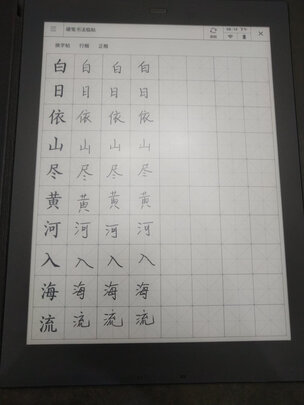 硬笔书法临帖
横平帖 行楷 正楷
白 白 白 白
日 日 日 日
依 依 依 依
山 山 山 山
尽 尽 尽 尽
黄 黄 黄 黄
河 河 河 河
入 入 入 入
海 海 海 海
流 流 流 流